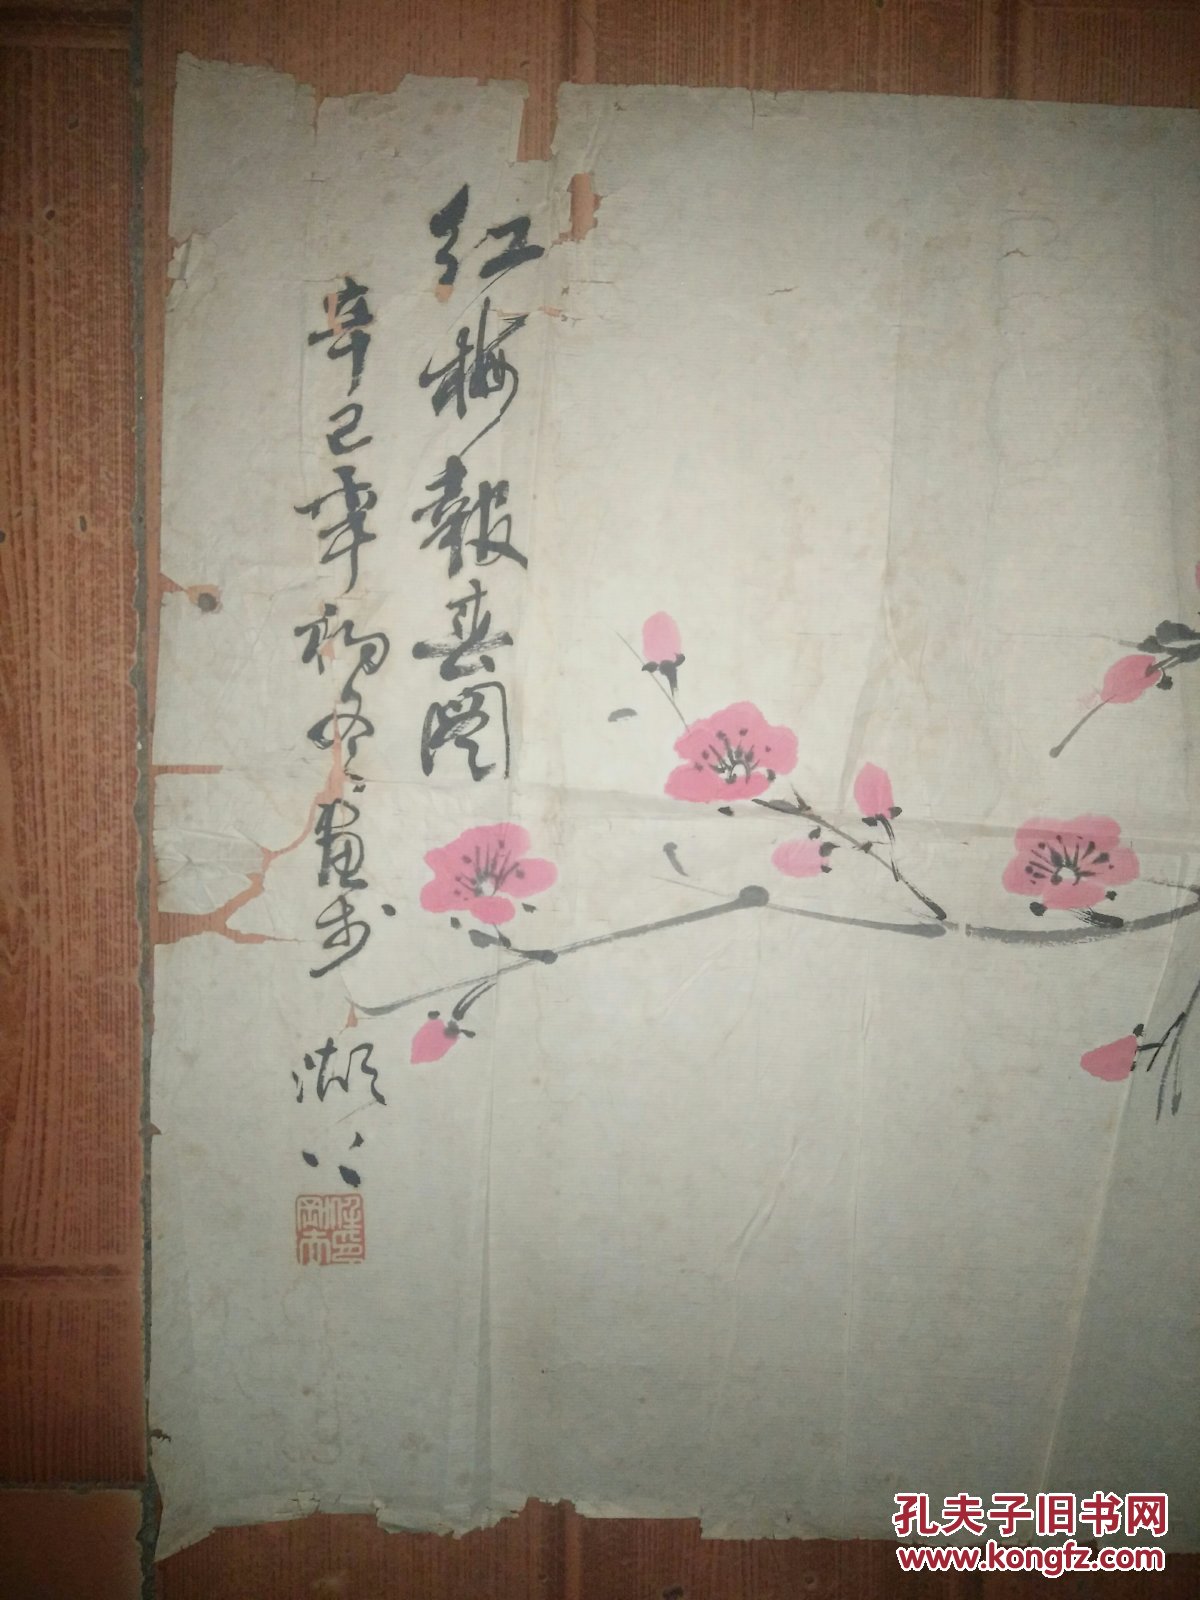 红梅報春图
辛巳年初冬画於
湖上
孔夫子旧书网
www.kongfz.com